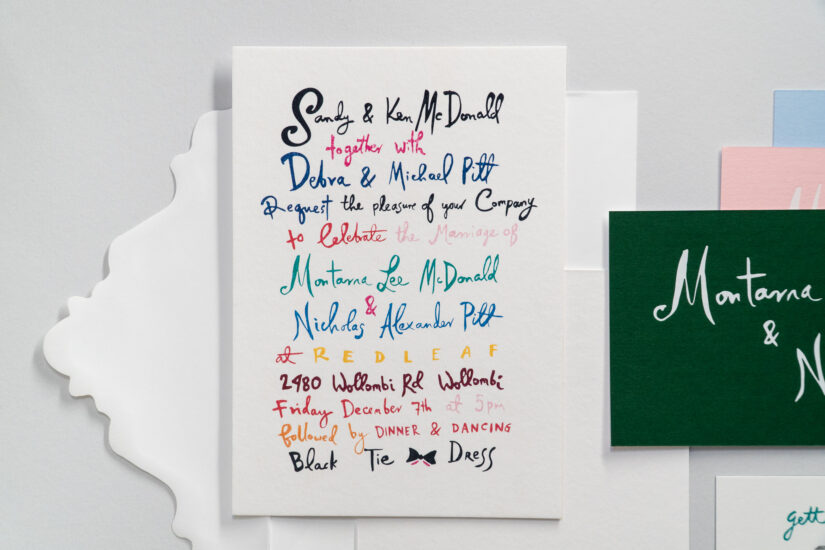 Sandy & Ken McDonald
together with
Debra & Michael Pitt
Request the pleasure of your Company
to Celebrate the Marriage of
Montarna Lee McDonald
&
Nicholas Alexander Pitt
at REDLEAF
2980 Wollombi Rd Wollombi
Friday December 7th at 5pm
followed by DINNER & DANCING
Black Tie Dress
Montarna
&
N
gett